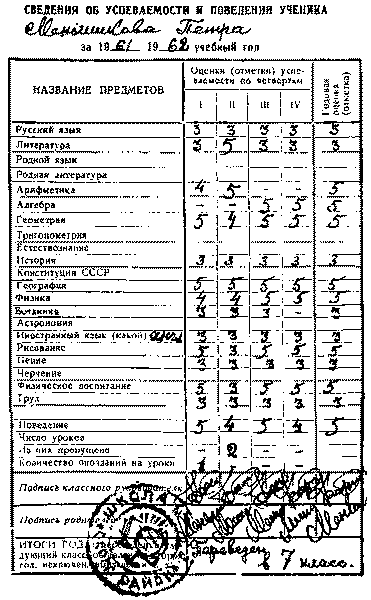 СВЕДЕНИЯ ОБ УСПЕВАЕМОСТИ И ПОВЕДЕНИИ УЧЕНИКА
Меньшикова Петра
за 1961 1962 учебный год
НАЗВАНИЕ ПРЕДМЕТОВ Оценки (отметки) успеваемости по четвертям Годовая оценка (отметка)
I II III IV
Русский язык 3 3 3 3 3
Литература 3 5 3 3 3
Родной язык
Родная литература
Арифметика 4 5 - - 5
Алгебра - - 5 5 5
Геометрия 5 4 5 5 5
Тригонометрия
Естествознание
История 3 3 3 3 3
Конституция СССР
География 5 5 5 5 5
Физика 4 4 5 5 5
Ботаника 3 3 3 - 3
Астрономия
Иностранный язык (какой) 3 3 3 3 3
Рисование 5 3 5 5 5
Пение 3 3 3 3 3
Черчение
Физическое воспитание 5 3 5 5 5
Труд 3 3 3 3 3
Поведение 5 4 5 4 5
Число уроков
Из них пропущено - 2 - -
Количество опозданий на уроки 1 - - -
Подпись классного руководителя
Подпись родителей
ШКОЛА
ИТОГИ ГОДА
Переведен в 7 класс.
дующий класс
год, исключен
РАЙОНО